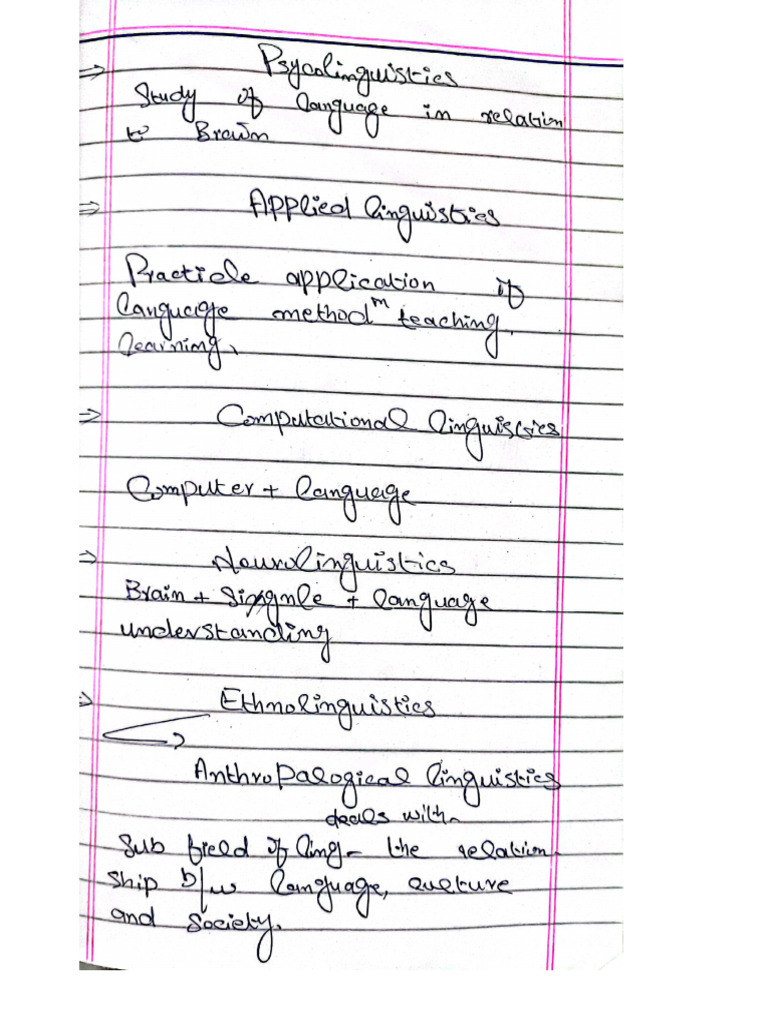 ⇒ Psycolinguistics
Study of language in relation
to Brain
⇒ Applied linguistics
Practicle application of
language method in teaching
learning.
⇒ Computational linguistics
Computer + language
⇒ Neurolinguistics
Brain + Signle + language
understanding
⇒ Ethnolinguistics
Anthropalogical linguistics
deals with
Sub field of ling - the relation-
ship b/w language, culture
and society.